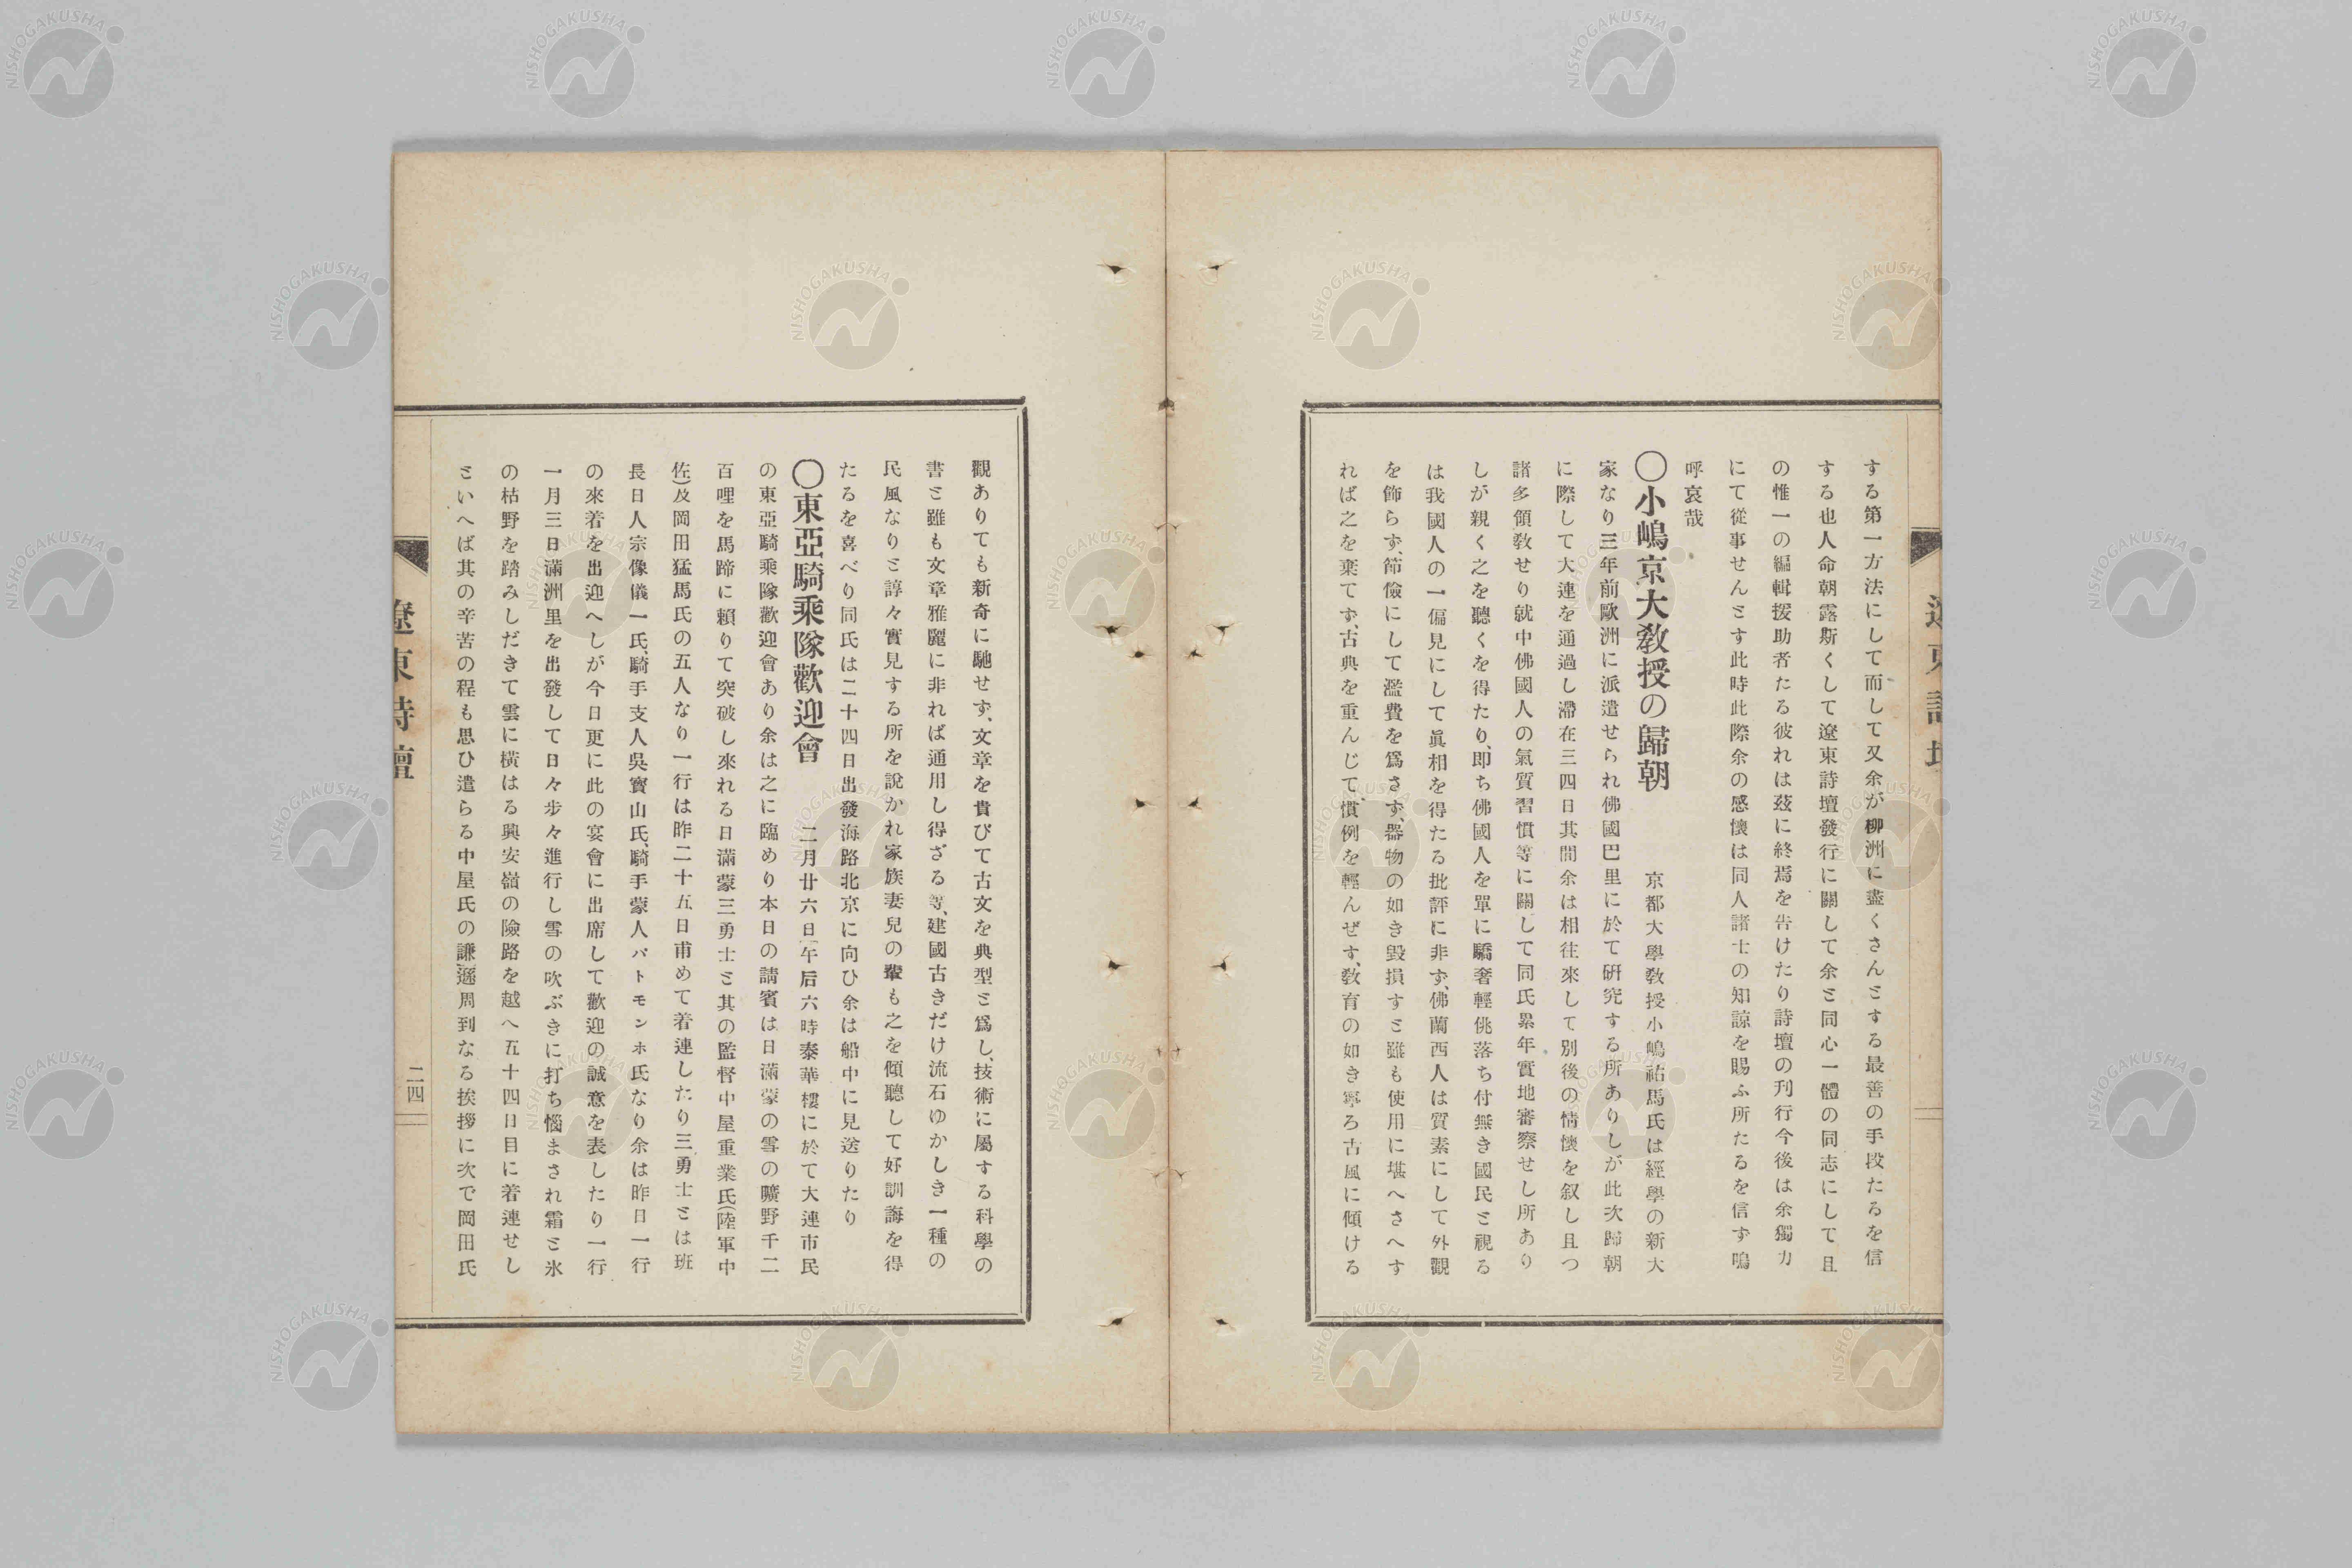 する第一方法にして而して又余が柳洲に盡くさんとする最善の手段たるを信
する也人命朝露斯くして遼東詩壇發行に關して余と同心一體の同志にして且
の惟一の編輯援助者たる彼れは玆に終焉を告けたり詩壇の刋行今後は余獨力
にて從事せんとす此時此際余の感懷は同人諸士の知諒を賜ふ所たるを信ず嗚
呼哀哉
〇小嶋京大敎授の歸朝 京都大學敎授小嶋祐馬氏は經學の新大
家なり三年前歐洲に派遣せられ佛國巴里に於て硏究する所ありしが此次歸朝
に際して大連を通過し滯在三四日其間余は相往來して別後の情懷を叙し且つ
諸多領敎せり就中佛國人の氣質習慣等に關して同氏累年實地審察せし所あり
しが親く之を聽くを得たり、卽ち佛國人を單に驕奢輕佻落ち付無き國民と視る
は我國人の一偏見にして眞相を得たる批評に非ず、佛蘭西人は質素にして外觀
を飾らず、節儉にして濫費を爲さず、器物の如き毀損すと雖も使用に堪へさへす
れば之を棄てず、古典を重んじて、慣例を輕んぜず、敎育の如き寧ろ古風に傾ける
觀ありても新奇に馳せず、文章を貴びて古文を典型と爲し、技術に屬する科學の
書と雖も文章雅麗に非れば通用し得ざる等、建國古きだけ流石ゆかしき一種の
民風なりと諄々實見する所を說かれ家族妻兒の輩も之を傾聽して好訓誨を得
たるを喜べり同氏は二十四日出發海路北京に向ひ余は船中に見送りたり
〇東亞騎乘隊歡迎會 二月廿六日午后六時泰華樓に於て大連市民
の東亞騎乘隊歡迎會あり余は之に臨めり本日の請賓は日滿蒙の雪の曠野千二
百哩を馬蹄に賴りて突破し來れる日滿蒙三勇士と其の監督中屋重業氏(陸軍中
佐)及岡田猛馬氏の五人なり一行は昨二十五日甫めて着連したり三勇士とは班
長日人宗像儀一氏、騎手支人吳寳山氏、騎手蒙人バトモンホ氏なり余は昨日一行
の來着を出迎へしが今日更に此の宴會に出席して歡迎の誠意を表したり一行
一月三日滿洲里を出發して日々步々進行し雪の吹ぶきに打ち惱まされ霜と氷
の枯野を踏みしだきて雲に橫はる興安嶺の險路を越へ五十四日目に着連せし
といへば其の辛苦の程も思ひ遣らる中屋氏の謙遜周到なる挨拶に次で岡田氏
遼東詩壇
二四